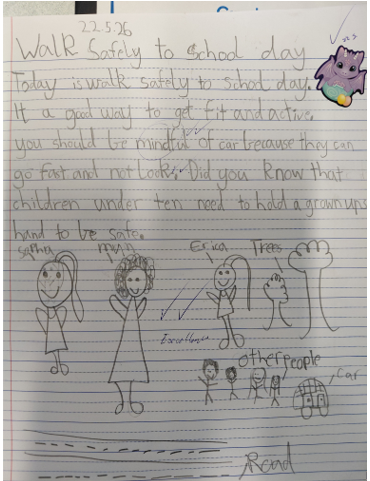 22.5.26
Walk Safely to School day
Today is walk safely to school day.
It a good way to get fit and active.
you should be mindful of car because they can
go fast and not look. Did you know that
children under ten need to hold a grown ups
hand to be safe.
mum
Erica
Trees
Excellent
other people
car
Road